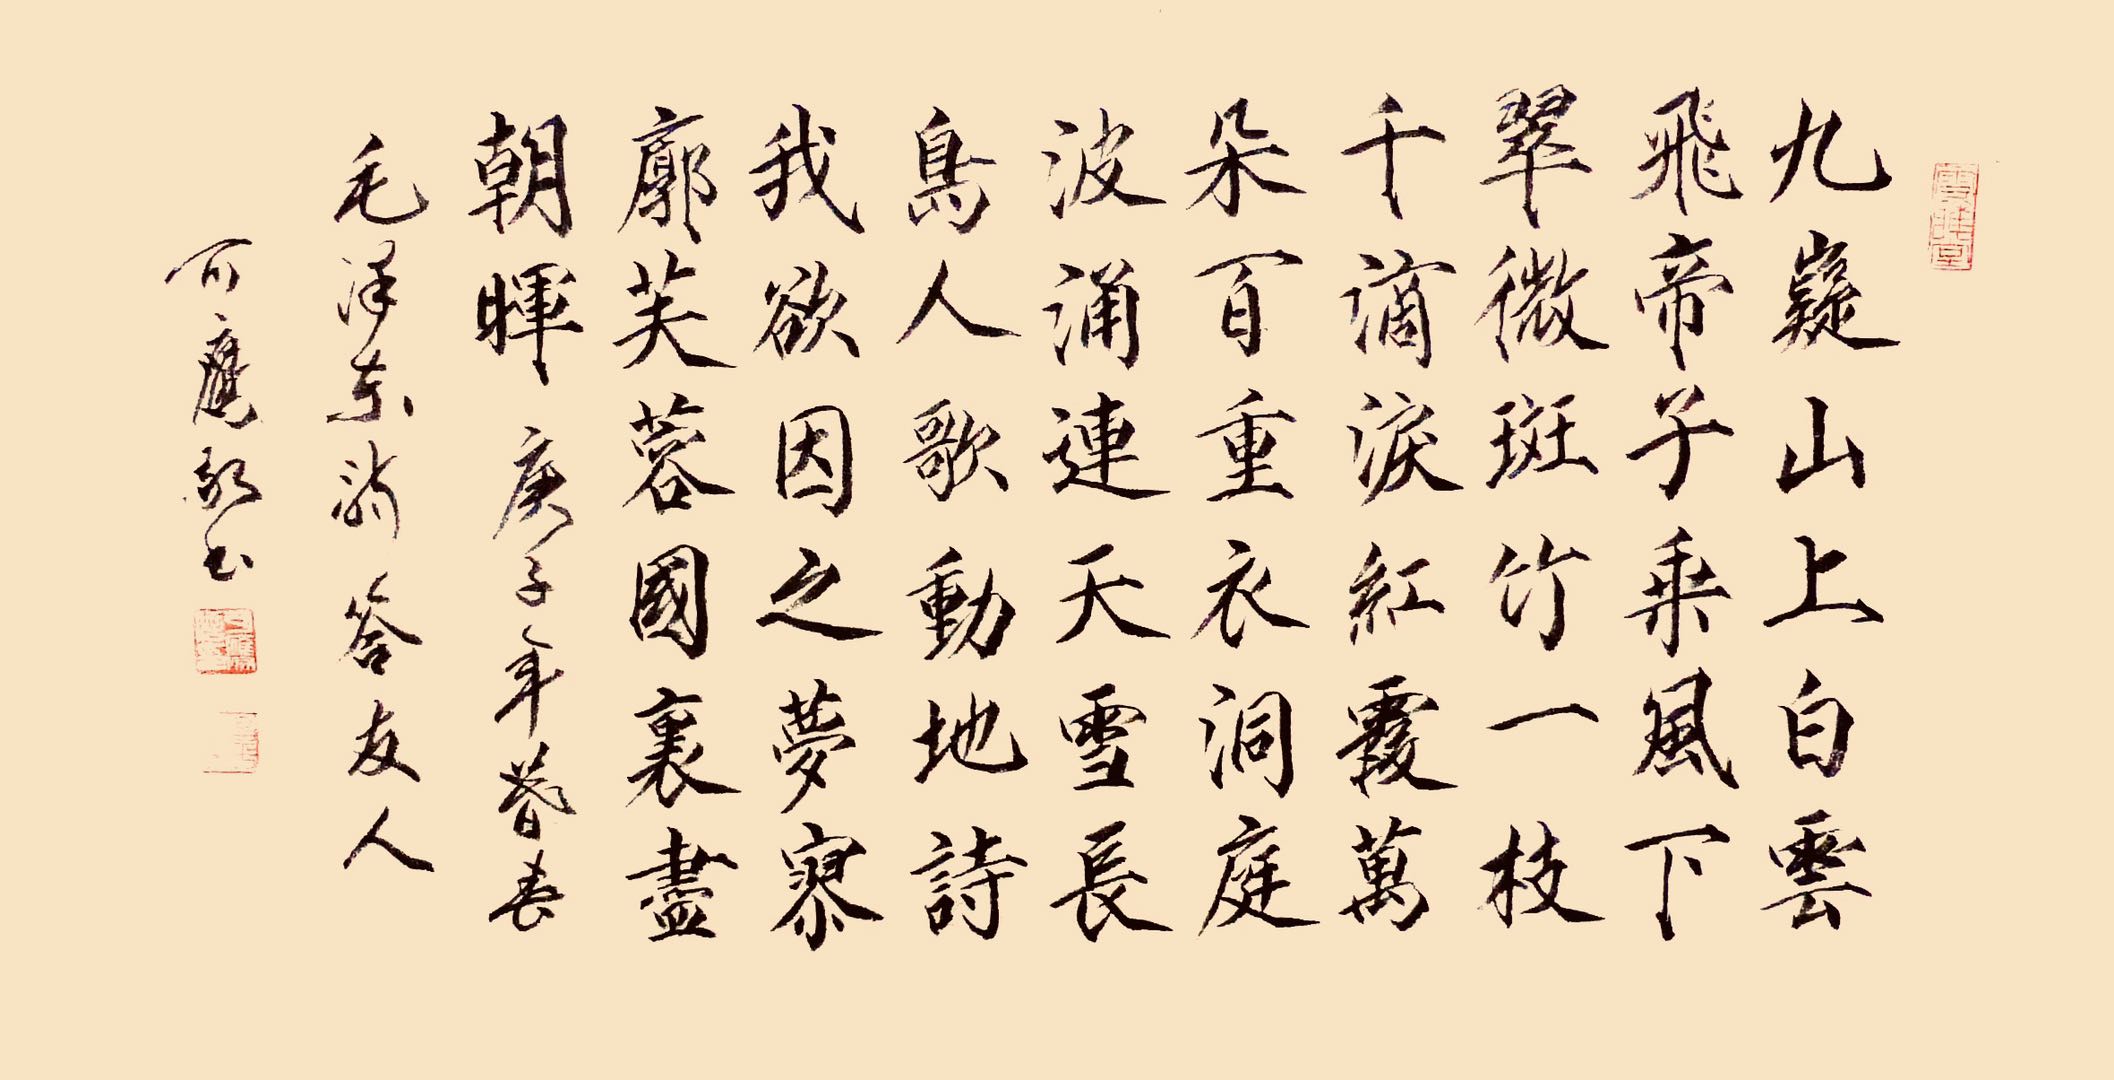 九嶷山上白雲
飛帝子乘風下
翠微斑竹一枝
千滴淚紅霞萬
朵百重衣洞庭
波涌連天雪長
島人歌動地詩
我欲因之夢寥
廓芙蓉國裏盡
朝暉 庚子年暮春
毛澤東詩 答友人
書